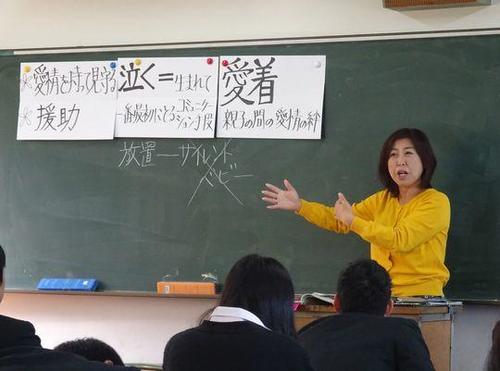 ※愛情を持って見守る
※援助
泣く＝生まれて
一番最初にとるコミュニケーション手段
愛着
親子の間の愛情の絆
放置―サイレント
ベビー